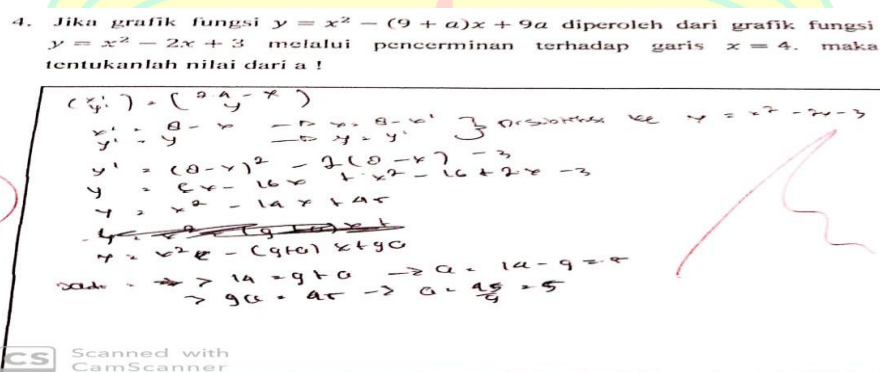 4. Jika grafik fungsi y = x² − (9 + a)x + 9a diperoleh dari grafik fungsi
y = x² − 2x + 3 melalui pencerminan terhadap garis x = 4. maka
tentukanlah nilai dari a !
y' = y → y = y'
y' = (8-x)² - 2(8-x) - 3
y = 64 - 16x + x² - 16 + 2x - 3
y = x² - 14x + 45
y = x² - (9+a)x + 9a
> 14 = 9 + a → a = 14 - 9 = 5
> 9a = 45 → a = 45/9 = 5
CS Scanned with
CamScanner